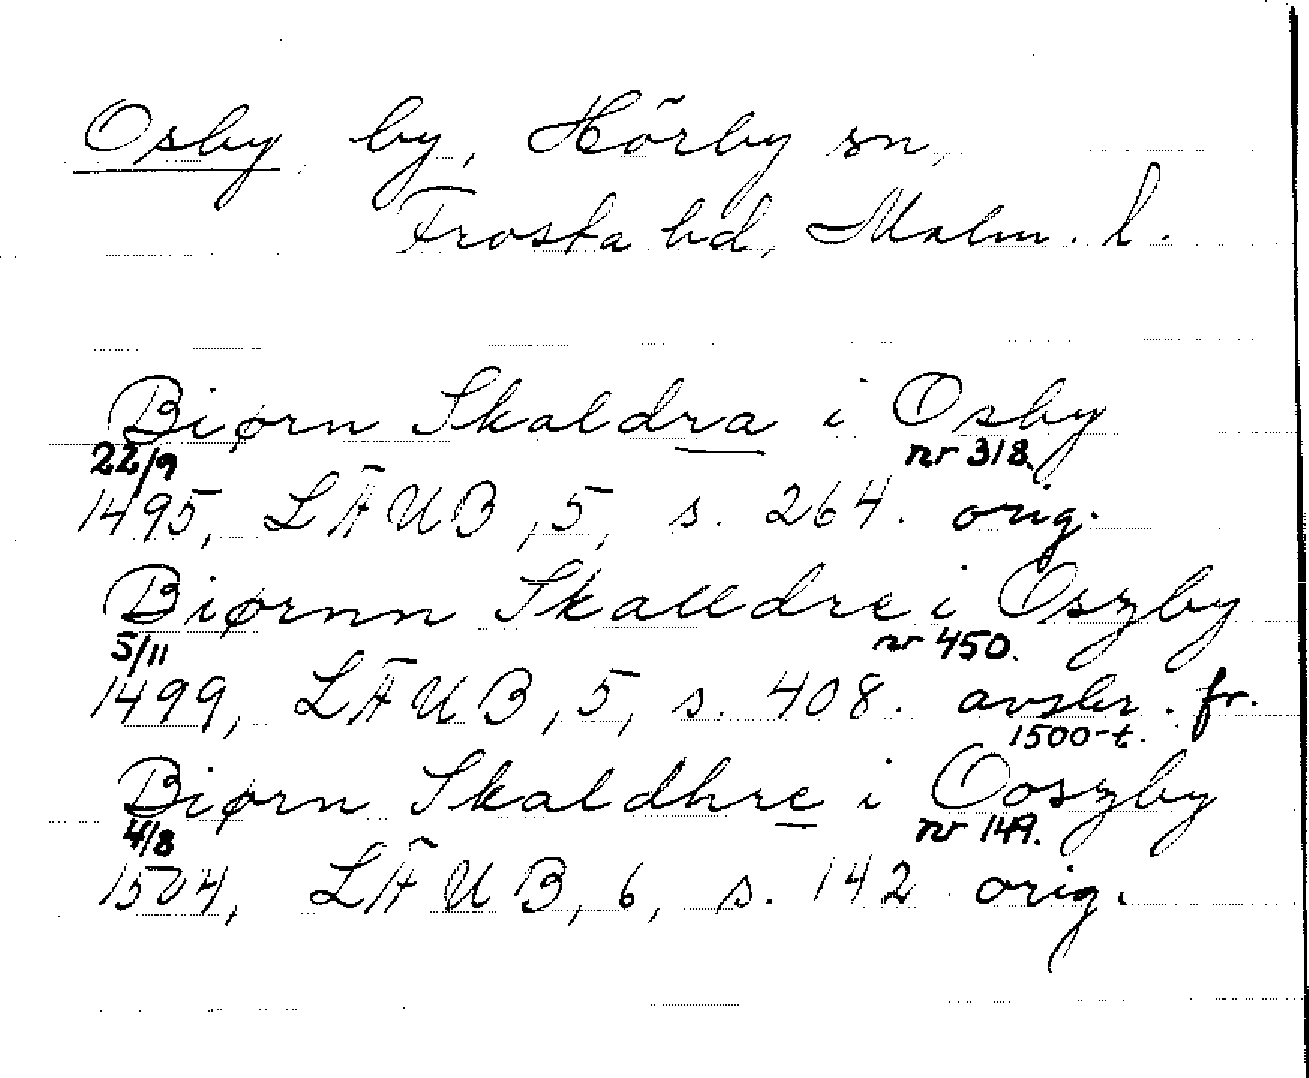 Osby by, Hörby sn,
Frosta hd, Malm. l.
Biørn Skaldra i Osby
22/9 nr 318.
1495, LÄUB, 5, s. 264. orig.
Biørnn Skalldre i Oszby
5/11 nr 450.
1499, LÄUB, 5, s. 408. avskr. fr.
1500-t.
Biørn Skaldhre i Ooszby
4/8 nr 149.
1504, LÄUB, 6, s. 142 orig.